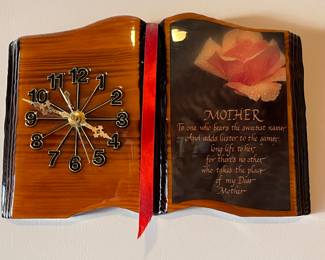 12
11
1
10
2
9
3
8
4
7
5
6
MOTHER
To one who bears the sweetest name
And adds luster to the same
long life to her,
for there's no other
who takes the place
of my Dear
Mother